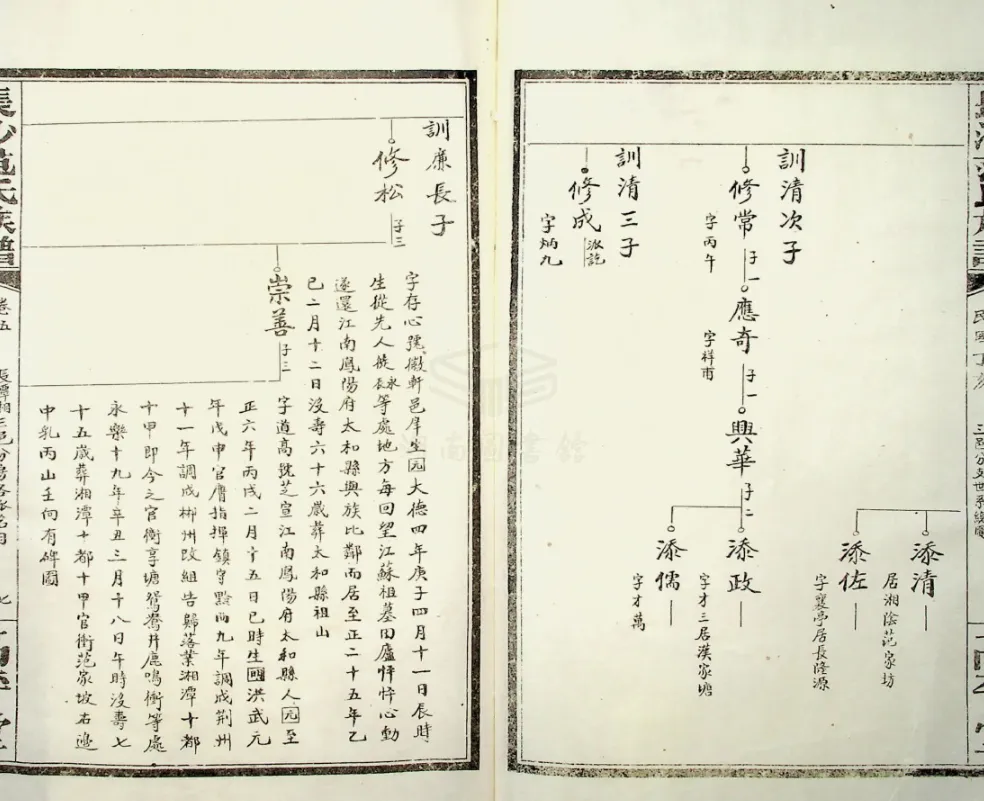 訓清次子
修常
子一
字丙午
應奇
子一
字祥甫
興華
子二
添政
字才三居漢家塘
添儒
字才萬
訓清三子
修成
字炳九
添清
居湘陰范家坊
添佐
字襄亭居長隆源
訓廉長子
修松
子三
字存心號徽軒邑庠生元大德四年庚子四月十一日辰時
生從先人徙永長等處地方每回望江蘇祖墓田廬怦怦心動
遂還江南鳳陽府太和縣與族比鄰而居至正二十五年乙
巳二月十二日沒壽六十六歲葬太和縣祖山
崇善
子三
字道高號芝宣江南鳳陽府太和縣人元至
正六年丙戌二月十五日巳時生國洪武元
年戊申官膺指揮鎮守黔而九年調戍荆州
十一年調戍郴州改組告歸落業湘潭十都
十甲即今之官衝享塘鴛鴦井鹿鳴衝等處
永樂十九年辛丑三月十八日午時沒壽七
十五歲葬湘潭十都十甲官衝范家坡右邊
申乳丙山壬向有碑圖
長沙范氏族譜
卷五
湖南圖書館